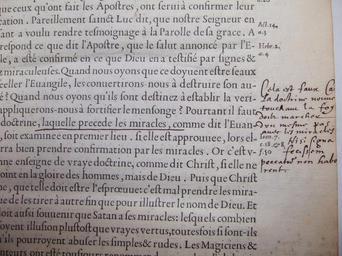 que ceux qu'ont fait les Apostres, ont serui à confirmer leur
cation. Pareillement sainct Luc dit, que nostre Seigneur en
sant a voulu rendre tesmoignage à la Parolle de sa grace. A
respond ce que dit l'Apostre, que le salut annoncé par l'E-
e, a esté confirmé en ce que Dieu en a testifié par signes &
miraculeuses. Quand nous oyons que ce doyuent estre seaux
céeller l'Euangile, les conuertirons-nous à destruire son au-
é? Quand nous oyons qu'ils sont destinez à establir la veri-
appliquerons-nous à fortifier le mensonge? Pourtant il faut
doctrine, laquelle precede les miracles, comme dit l'Euan-
, soit examinée en premier lieu. si elle est approuuee, lors el-
rra bien prendre confirmation par les miracles. Or c'est v-
nne enseigne de vraye doctrine, comme dit Christ, si elle ne
point en la gloire des hommes, mais de Dieu. Puis que Christ
e, que telle doit estre l'espreuue: c'est mal prendre les mira-
e les tirer à autre fin que pour illustrer le nom de Dieu. Et
doit aussi souuenir que Satan a ses miracles: lesquels combien
oyent illusion plustost que vrayes vertus, toutesfois si sont-ils
u'ils pourroyent abuser les simples & rudes. Les Magiciens &
Act.14.
a.3
Hebr.2.
a.4
Cela est faux Ca
la doctrine
les miracles
si signa
fecissem
peccatum non habe
rent.